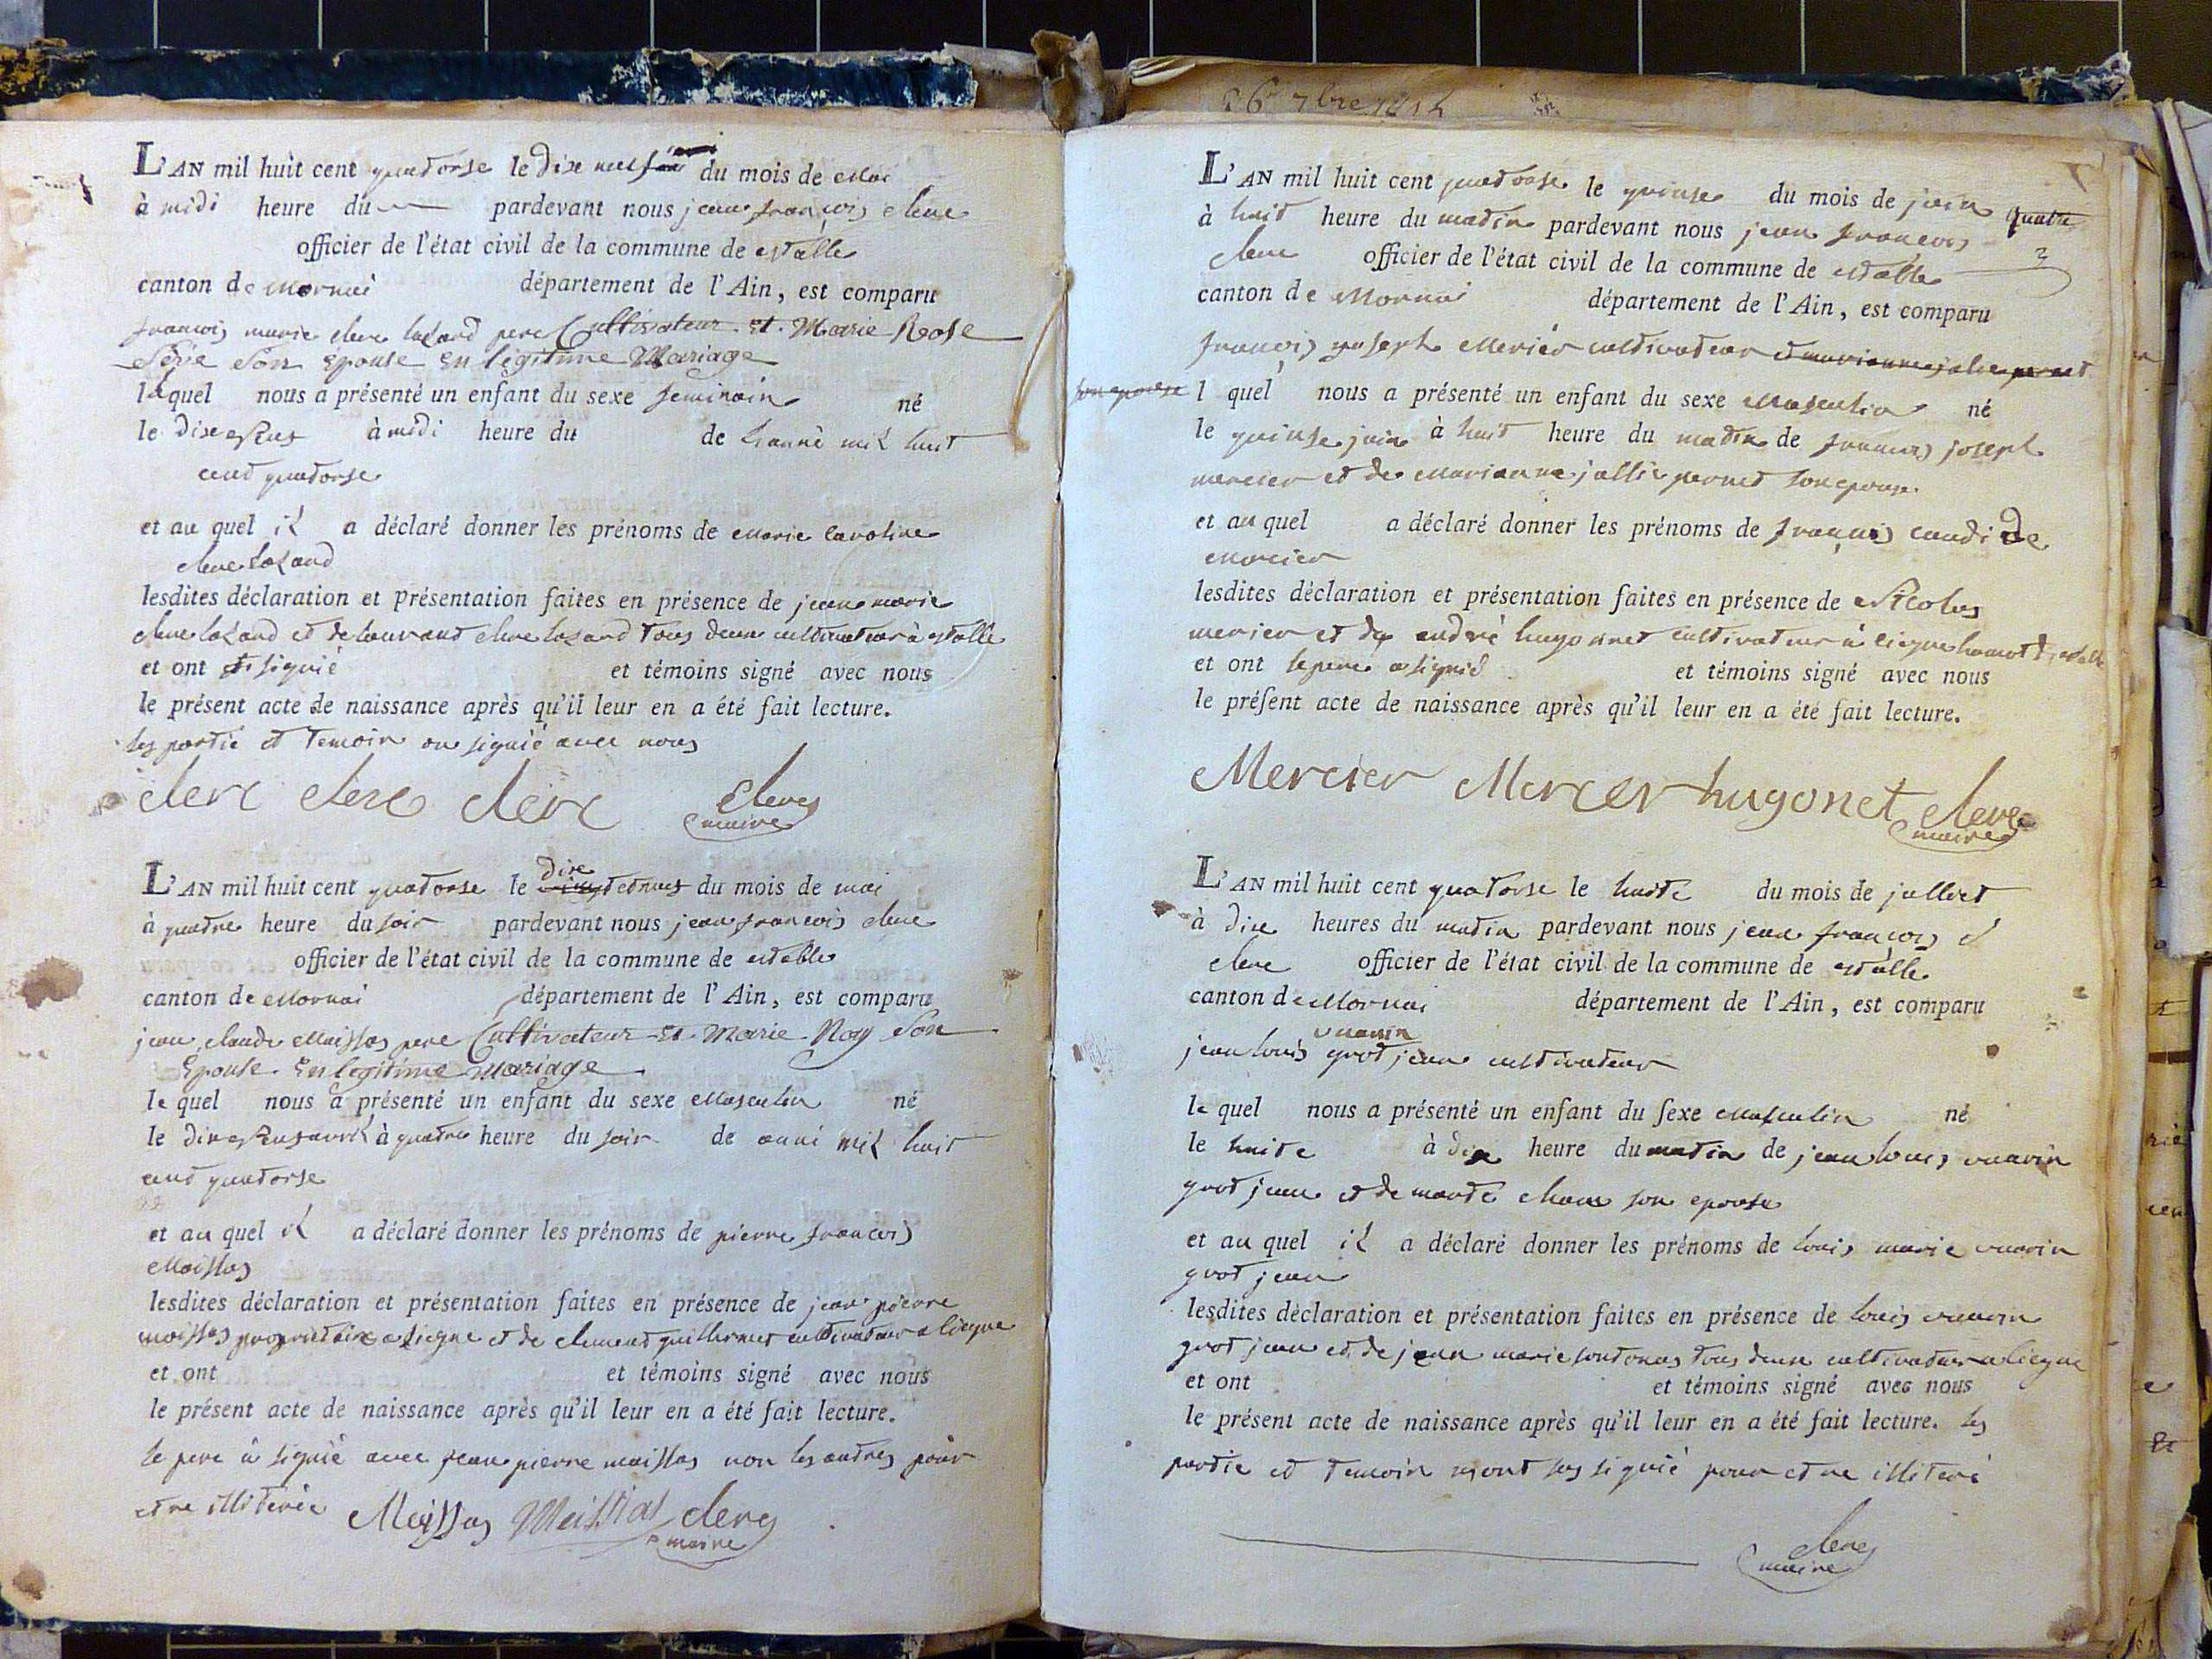 L'AN mil huit cent quatorse le dix neuf du mois de Mai
à midi heure du pardevant nous jean françois clerc
officier de l'état civil de la commune de estable
canton de Mornai département de l'Ain, est comparu
francois marie clerc lazard pere Cultivateur Et Marie Rose
Son Epouse En légitime Mariage
léquel nous a présenté un enfant du sexe feminain né
le dixe neuf à midi heure du de lannè mil huit
cent quatorse
et au quel il a déclaré donner les prénoms de Marie Caroline
clerc lazard
lesdites déclaration et présentation faites en présence de jean marie
clerc lazard et de laurant clerc lazard tous deux cultivateur à estable
et ont signié et témoins signé avec nous
le présent acte de naissance après qu'il leur en a été fait lecture.
les partie et temoin on signié avec nous
clerc clerc clerc clerc
maire
L'AN mil huit cent quatorse le dixe et neuf du mois de mai
à quatre heure du soir pardevant nous jean francois clerc
officier de l'état civil de la commune de estable
canton de Mornai département de l'Ain, est comparu
jean claude Maissas pere Cultivateur Et Marie Nay Son
Epouse En legitime mariage
le quel nous a présenté un enfant du sexe Masculin né
le dixe neuf à quatre heure du soir de anné mil huit
cent quatorse
et au quel il a déclaré donner les prénoms de pierre francois
Maissas
lesdites déclaration et présentation faites en présence de jean pierre
maissas propriétaire a liegne et de clement guillermet cultivateur a liegne
et ont et témoins signé avec nous
le présent acte de naissance après qu'il leur en a été fait lecture.
le pere à signié avec jean pierre maissas non les autres pour
etre illiterée Maissas Maissiat clerc
maire
26 7bre
L'AN mil huit cent quatorse le quinse du mois de juin
à huit heure du matin pardevant nous jean francois quatre
clerc officier de l'état civil de la commune de estable
canton de Mornai département de l'Ain, est comparu
francois joseph Mercier cultivateur
son epouse l quel nous a présenté un enfant du sexe Masculin né
le quinse juin à huit heure du matin de francois joseph
mercier et de Marianne jallie pernet son epouse
et au quel a déclaré donner les prénoms de francois candide
Mercier
lesdites déclaration et présentation faites en présence de Nicolas
mercier et de andrè hugonnet cultivateur à liegne
et ont le pere a signié et témoins signé avec nous
le présent acte de naissance après qu'il leur en a été fait lecture.
Mercier Mercier hugonet clerc
maire
L'AN mil huit cent quatorse le huite du mois de jullet
à dix heures du matin pardevant nous jean francois
clerc officier de l'état civil de la commune de estable
canton de Mornai département de l'Ain, est comparu
vuarin
jean louis grot jean cultivateur
le quel nous a présenté un enfant du sexe Masculin né
le huite à dix heure du matin de jean louis vuarin
grot jean et de son epouse
et au quel il a déclaré donner les prénoms de louis marie vuarin
grot jean
lesdites dèclaration et présentation faites en présence de louis vuarin
grot jean et de jean marie tous deux cultivateur a liegne
et ont et témoins signé avec nous
le présent acte de naissance après qu'il leur en a été fait lecture. les
partie et temoin signié pour etre illiteré
clerc
maire